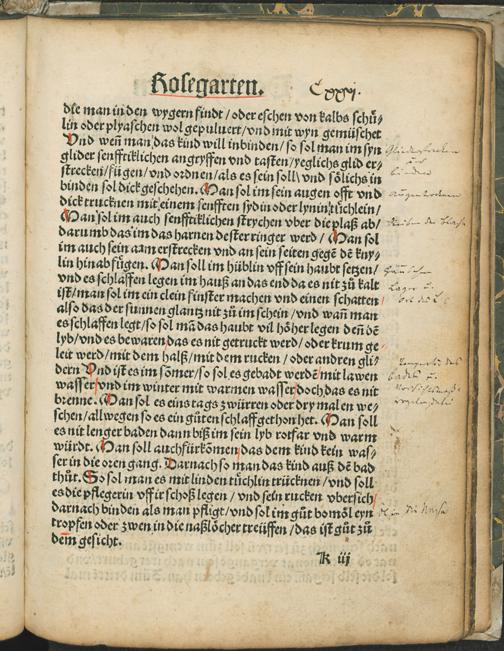 Rosegarten. Cxxi.
die man in den wygern findt/oder eschen von kalbs schuͤ-
lin oder plyaschen wol gepuluert/vnd mit wyn gemüschet
Vnd weñ man das kind will inbinden/so sol man im syn
glider senfftiklichen angryffen vnd tasten/yeglichs glid er-
strecken/fügen/vnd ordnen/als es sein soll/vnd soͤlichs in
binden sol dick geschehen. Man sol im sein augen offt vnd
dick trucknen mit einem senfften sydin oder lynin tuͤchlein/
Man sol im auch senfftiklichen strychen vber die plaß ab/
darumb das im das harnen dester ringer werd/Man sol
im auch sein arm erstrecken vnd an sein seiten gegē dē kny-
lin hinab fügen. Man soll im hüblin vff sein haubt setzen/
vnd es schlaffen legen im hauß an das end da es nit zuͦ kalt
ist/man sol im ein clein finster machen vnd einen schatten
also das der sunnen glantz nit zuͦ im schein/vnd wañ man
es schlaffen legt/so sol mā das haubt vil hoͤher legen deñ dē
lyb/vnd es bewaren/das es nit getruckt werd/oder krum ge-
leit werd/mit dem halß/mit dem rucken/oder andren gli-
dern Vnd ist es im somer/so sol es gebadt werdē mit lawen
wasser vnd im winter mit warmen wasser doch das es nit
brenne. Man sol es eins tags zwürren oder dry malen we-
schen/allwegen so es ein guͦten schlaff gethon het. Man soll
es nit lenger baden dann biß im sein lyb rotfar vnd warm
würdt. Man soll auch fürkomen/das dem kind kein was-
ser in die oren gang. Darnach so man das kind auß dē bad
thuͦt. So sol man es mit linden tuͤchlin trücknen/vnd soll
es die pflegerin vff ir schoß legen/vnd sein rucken vbersich/
darnach binden als man pfligt/vnd sol im guͦt bomoͤl eyn
tropfen oder zwen in die naßloͤcher treüffen/das ist guͦt zuͦ
dem gesicht.
K iij